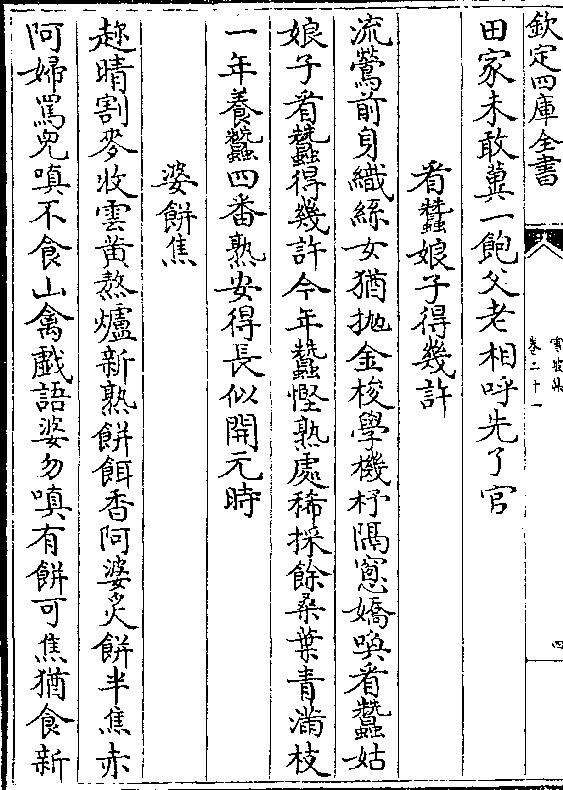 欽定四庫全書
雪坡集
卷二十一
四
田家未敢冀一飽父老相呼先了官
看蠶娘子得幾許
流鶯前身織絲女猶抛金梭學機杼隔窻嬌喚看蠶姑
娘子看蠶得幾許今年蠶慳熟處稀採餘桑葉青滿枝
一年養蠶四番熟安得長似開元時
婆餅焦
趂晴割麥收雲黄熬爐新熟餅餌香阿婆炙餅半焦赤
阿婦罵兒嗔不食山禽戲語婆勿嗔有餅可焦猶食新